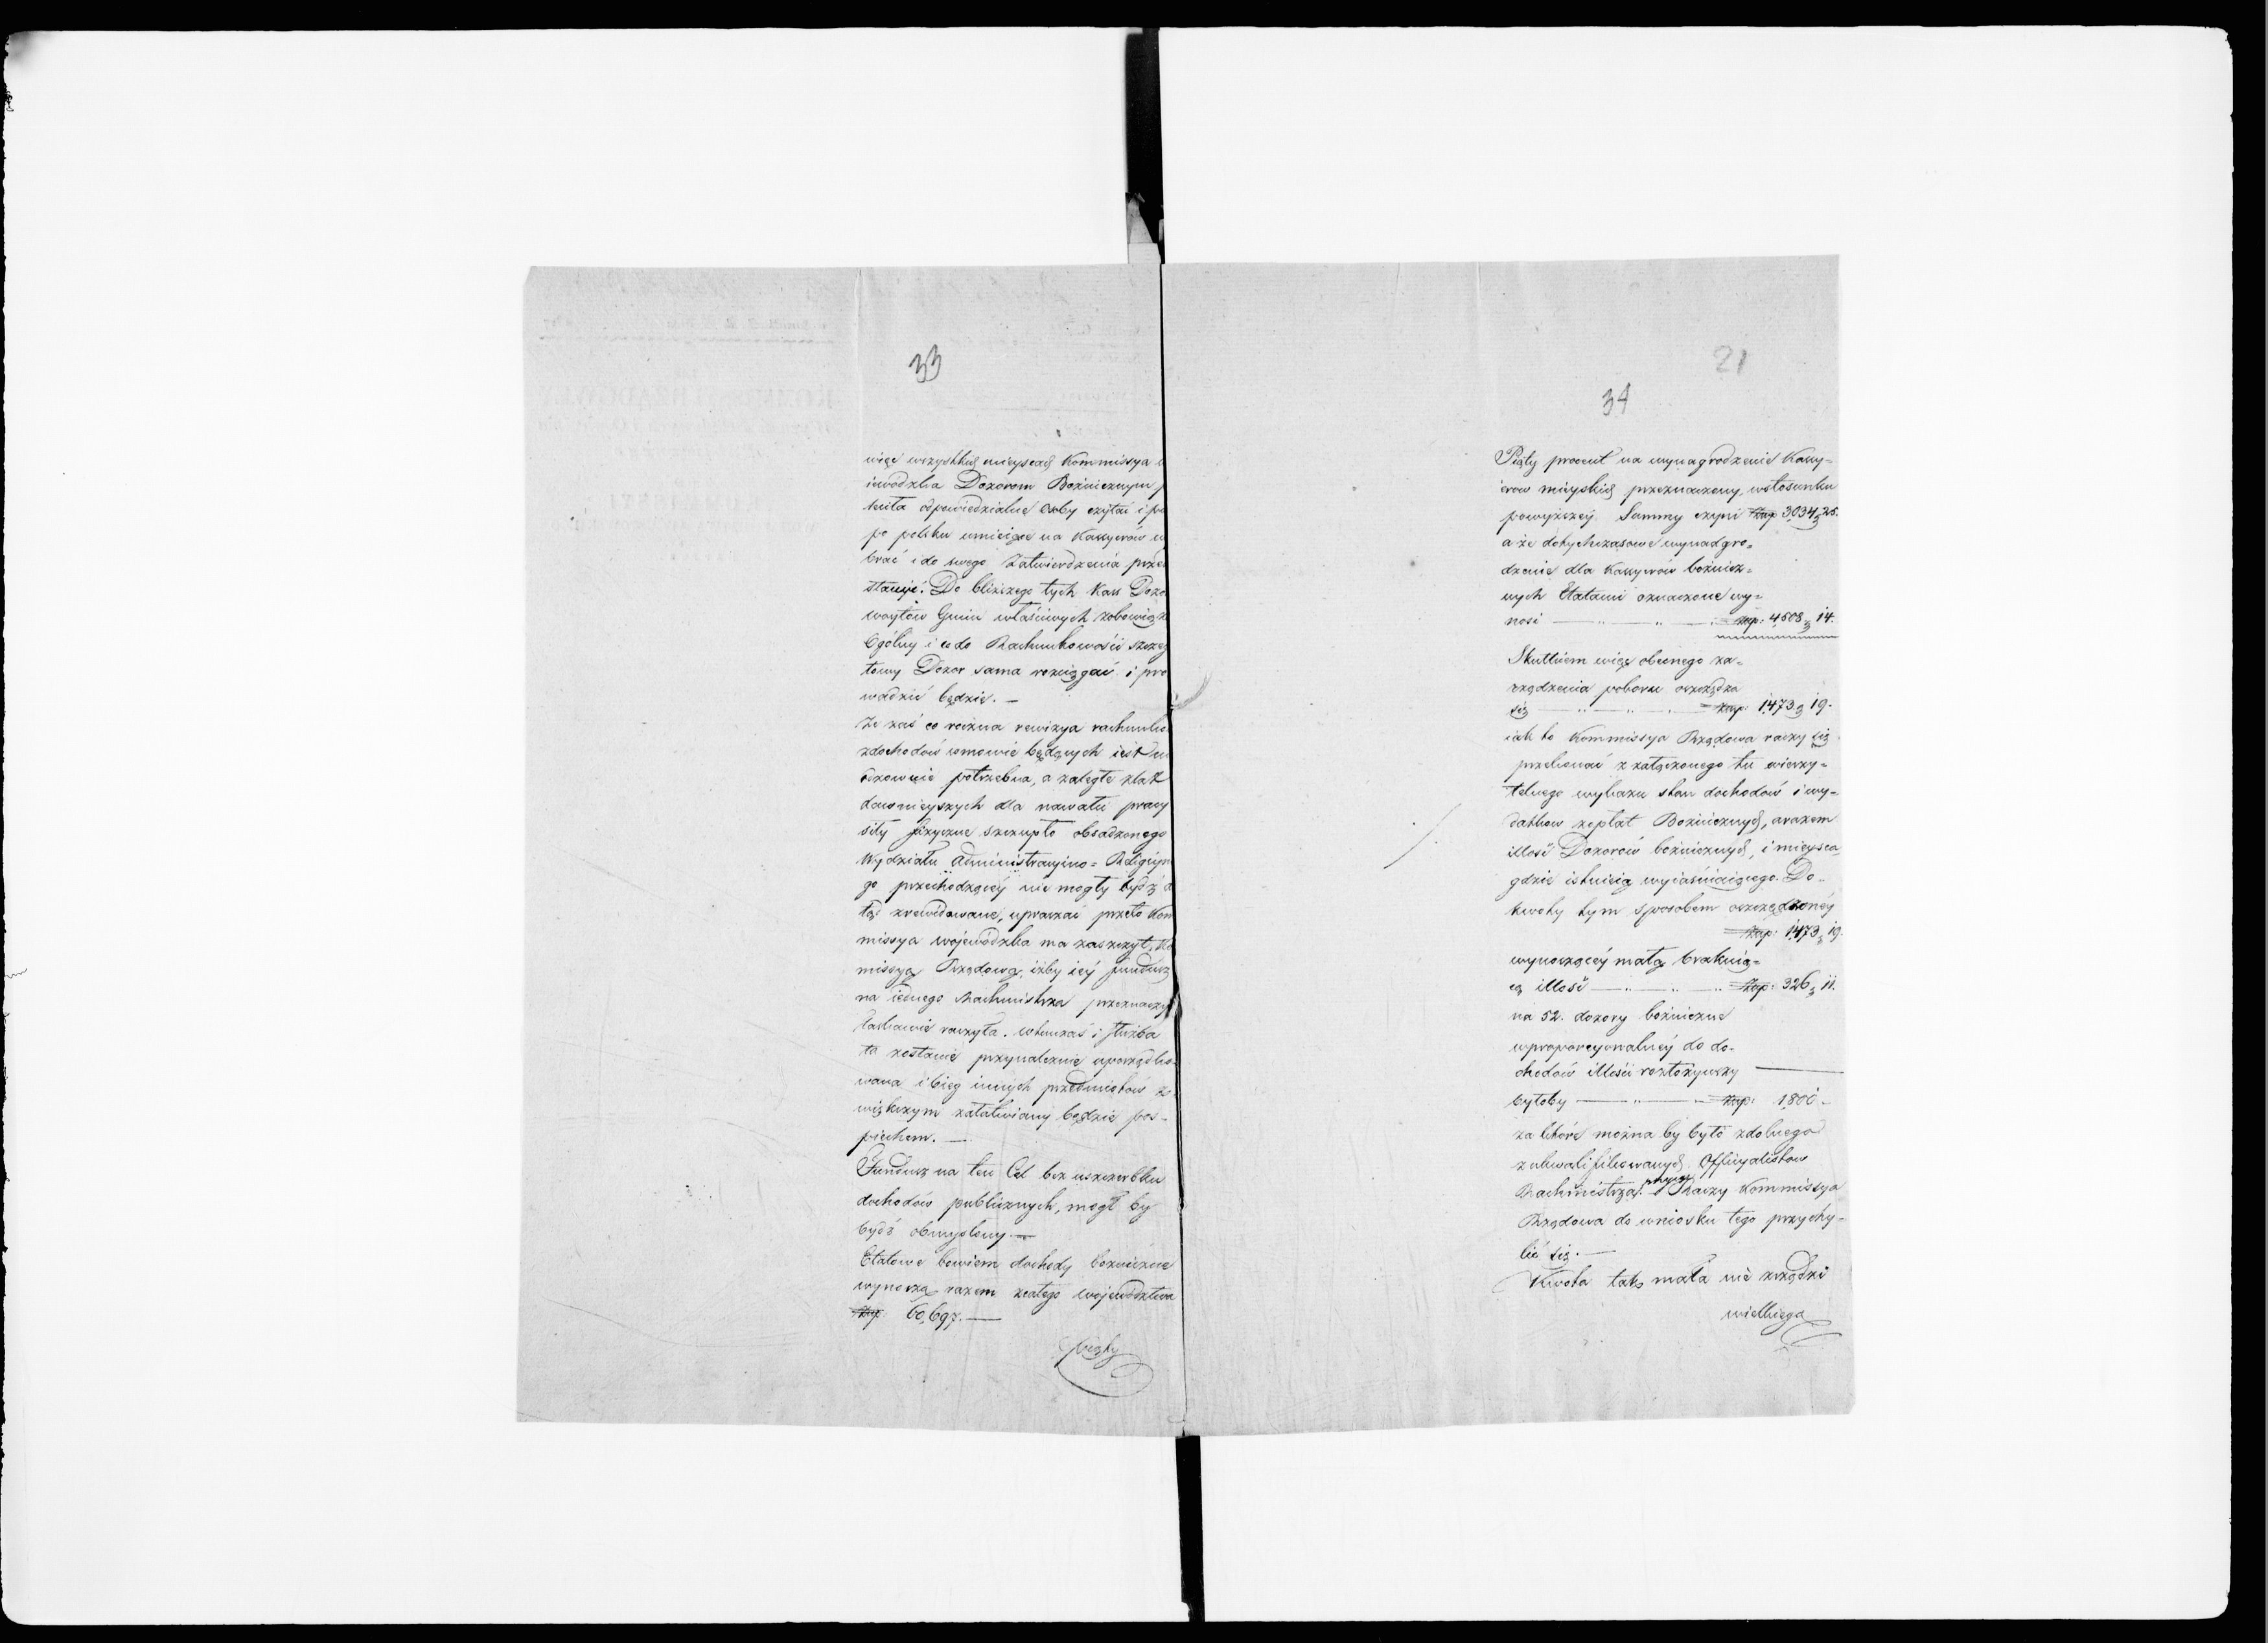 33
więc wszystkich mieyscach Kommissya
iewódzka Dozorom Bożnicznym
odpowiedzialne osoby czytać i
po polsku umieiące na Kassyerów
brać i do swego zatwierdzenia prze
stawić. Do bliższego tych Kass Dozo
woytów Gmin właściwych zobowiąże
Ogólny i co do Rachunkowości szczeg
łowy Dozor sama rozciągać i pro
wadzić będzie. —
Że zaś co roczna rewizya rachunko
zdochodów w mowie będących iest
potrzebna, a zaległe z lat
dawnieyszych dla nawału pracy
siły fizyczne szczupło obsadzonego
Wydziału Administracyino = Religiyn
go przechodzącey nie mogły bydź
tąd zrewidowane, upraszać przeto Kom
missya wojewódzka ma zaszczyt, Ko
missyą Rządową, iżby iey fundusz
na iednego Rachmistrza przeznaczyć
łaskawie raczyła. wówczas i służba
ta zostanie przynależnie uporządko-
wana i bieg innych przedmiotów z
większym załatwiany będzie pos-
piechem. —
Fundusz na ten Cel bez uszczerbku
dochodów publicznych, mógł by
bydź obmyślony. —
Etatowe bowiem dochody bożniczne
wynoszą razem z całego województwa
Złp. 60,697. —
piąty
21
34
Piąty procent na wynagrodzenie Kassy=
erów mieyskich przeznaczony, wstosunku
powyższey Summy czyni Złp 3034 g 25.
a że dotychczasowe wynadgro=
dzenie dla Kassyerów bożnicz=
nych Etatami oznaczone wy=
nosi — „ — Złp: 4508 g 14.
Skutkiem więc obecnego za=
rządzenia poboru oszczędza
się — „ — „ — Złp: 1473 g 19.
iak to Kommissya Rządowa raczy się
przekonać z załączonego tu wierzy=
telnego wykazu stan dochodów i wy=
datków z opłat Bożnicznych, a razem
illość Dozorów bożnicznych, i mieysca,
gdzie istnieią wyiaśniaiącego. Do-
kwoty tym sposobem oszczędzoney
Złp: 1473 g 19.
wynoszącey małą brakuią=
cą illość — „ — „ Złp: 326 g 11.
na 52. dozory bożniczne
w proporcyonalney do do-
chodów illości rozłożywszy
byłoby — „ — Złp: 1,800 -
za które można by było zdolnego
z ukwalifikowanych Officyalistów
Rachmistrza przyiąć. Raczy Kommissya
Rządowa do wniosku tego przychy-
lić się. —
Kwota tak mała nie zrządzi
wielkiego